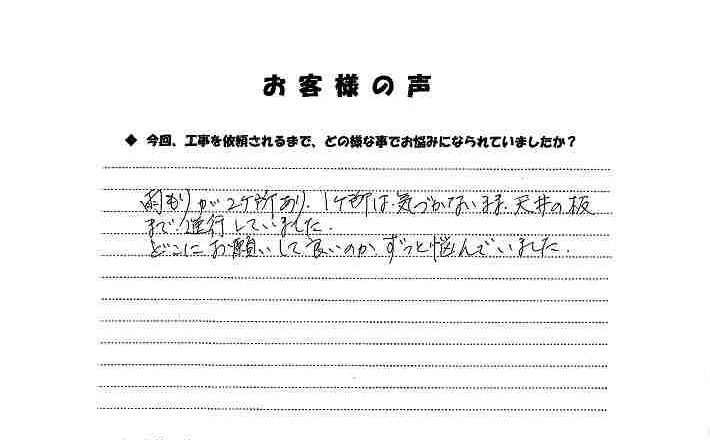 お客様の声
◆ 今回、工事を依頼されるまで、どの様な事でお悩みになられていましたか？
雨もりが2ヶ所あり、1ケ所は気づかないまま天井の板
まで進行していました。
どこにお願いして良いのか、ずっと悩んでいました。